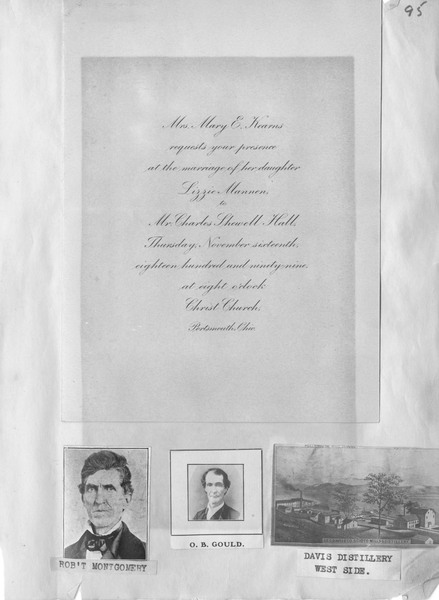 95
Mrs. Mary E. Kearns
requests your presence
at the marriage of her daughter
Lizzie Mannen,
to
Mr. Charles Shewell Hall,
Thursday, November sixteenth,
eighteen hundred and ninety-nine.
at eight o'clock
Christ Church,
Portsmouth, Ohio.
ROB'T MONTGOMERY
O. B. GOULD.
DAVIS DISTILLERY
WEST SIDE.